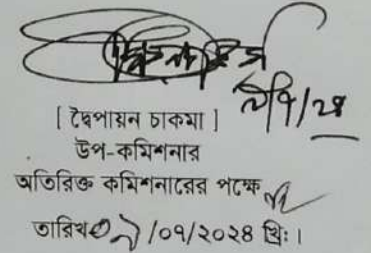 [ দ্বৈপায়ন চাকমা ]
উপ-কমিশনার
অতিরিক্ত কমিশনারের পক্ষে
তারিখঃ /০৭/২০২৪ খ্রিঃ।